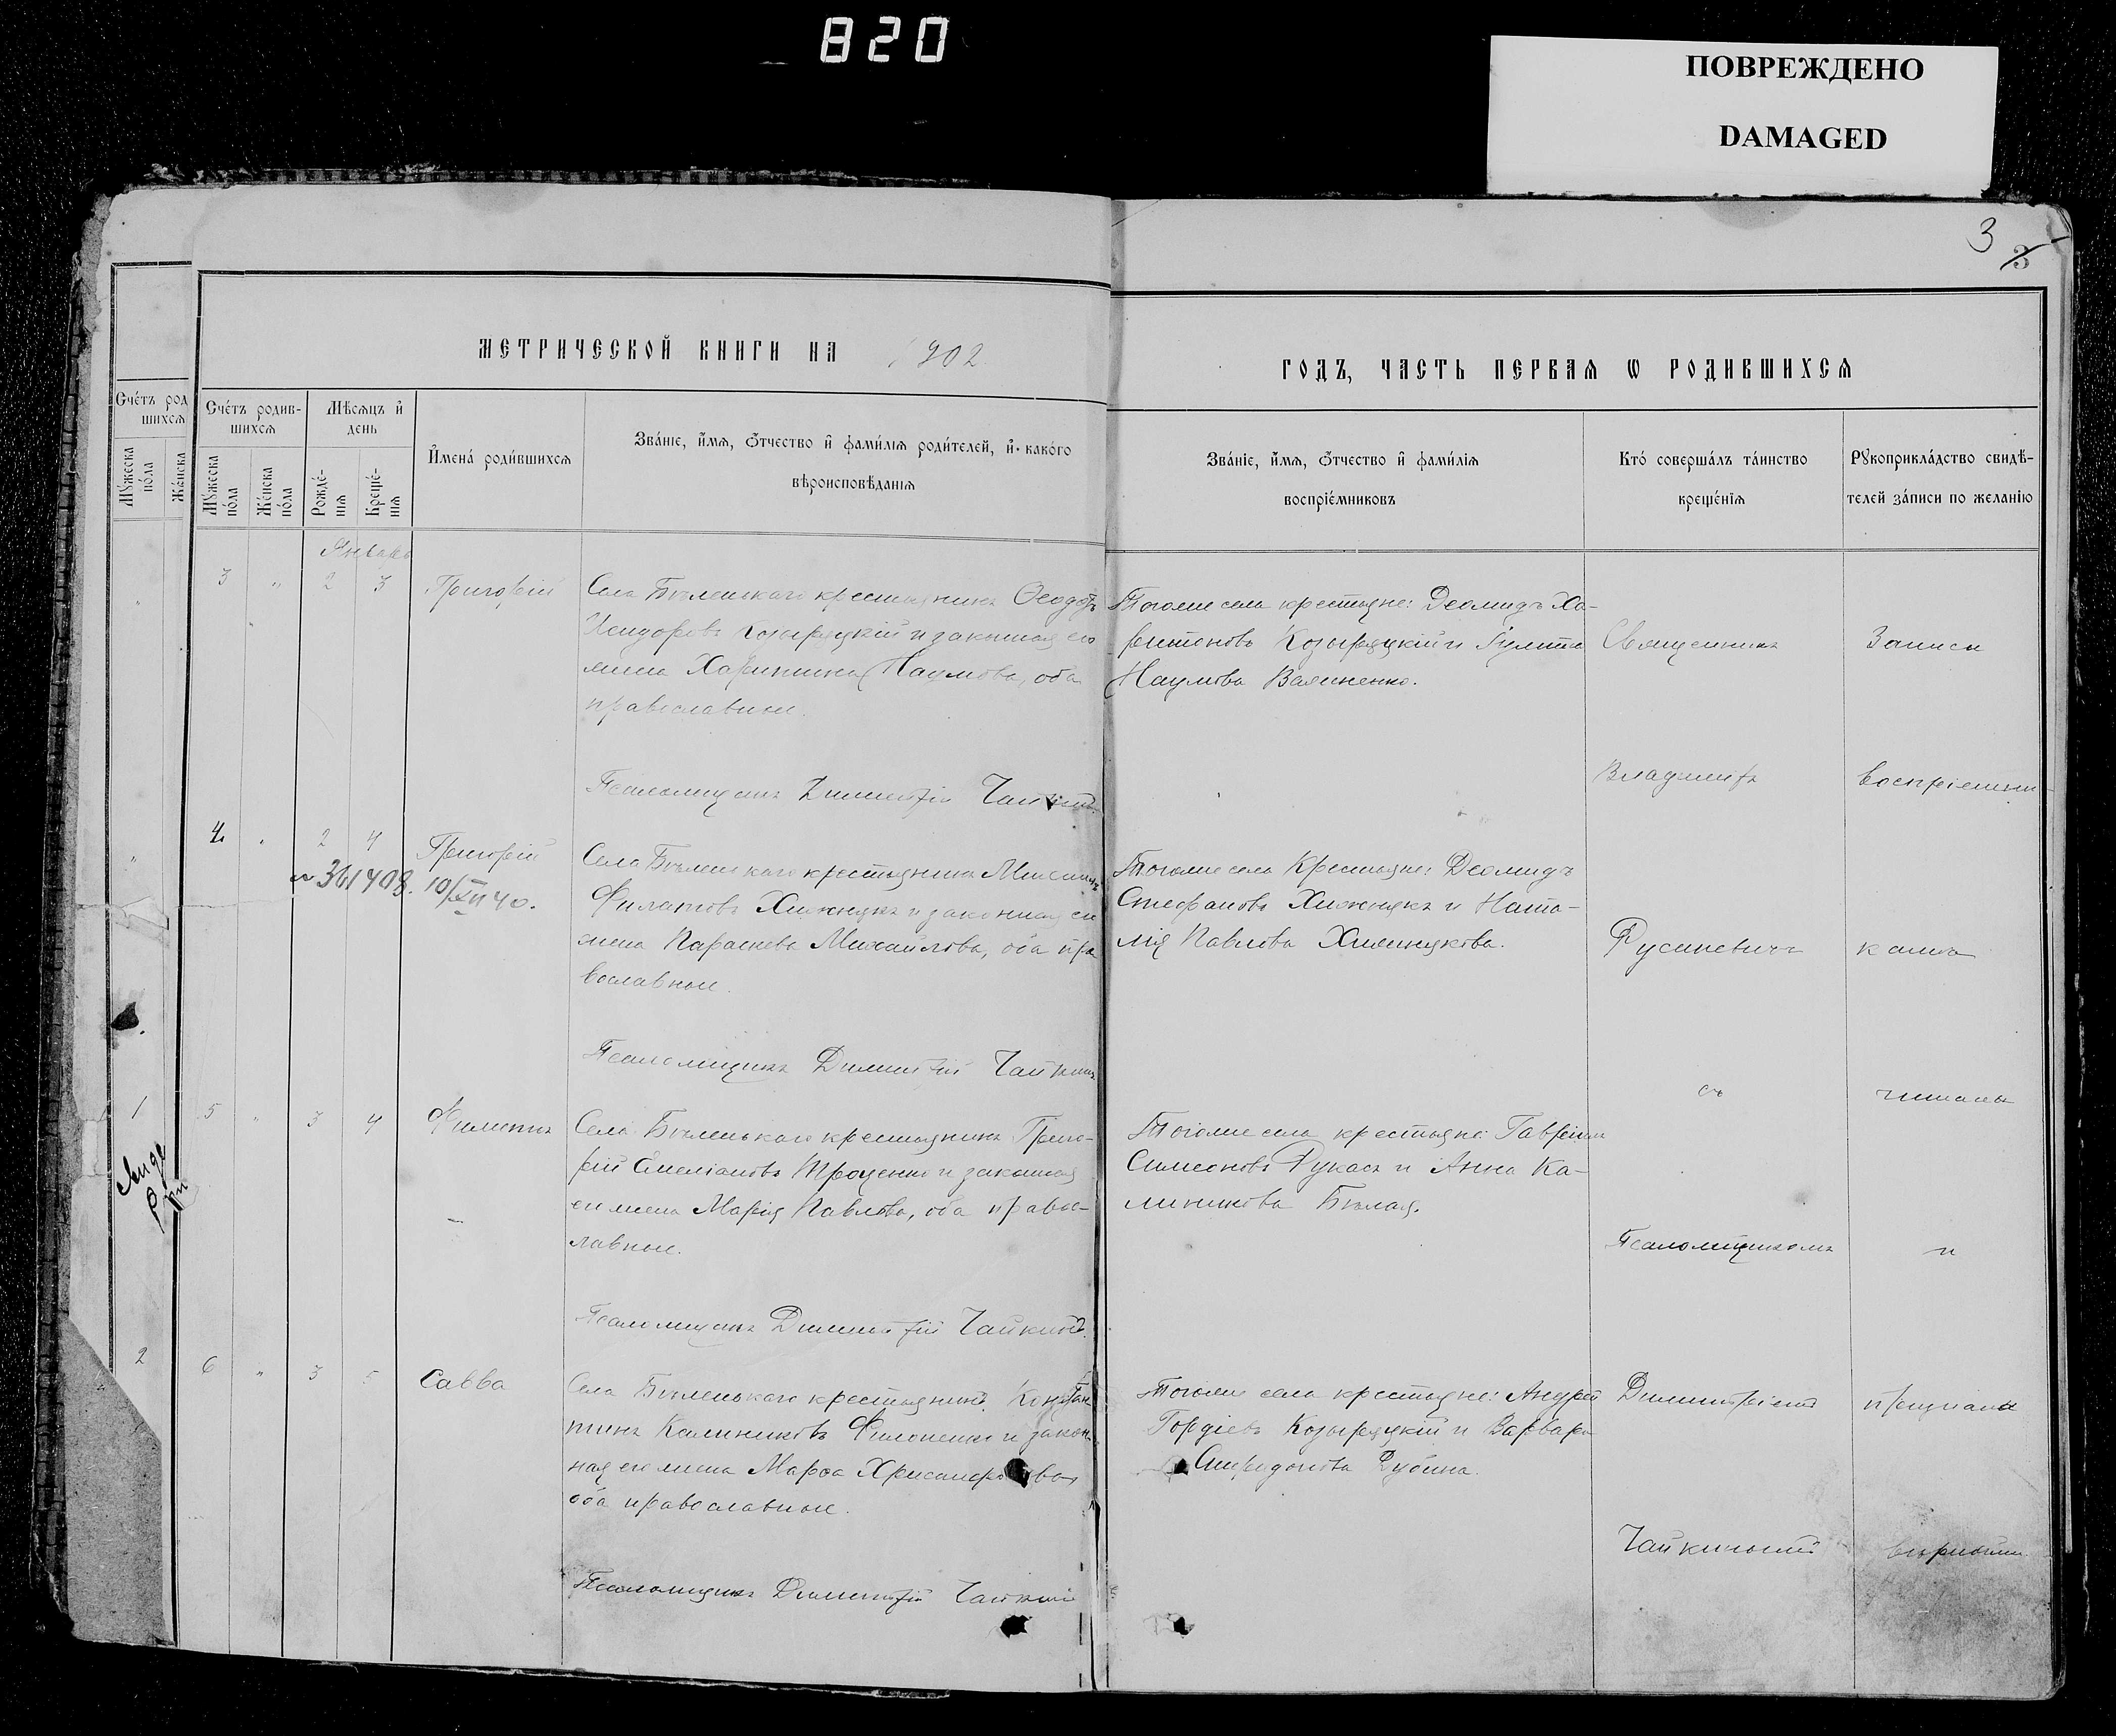 820
ПОВРЕЖДЕНО
DAMAGED
3
3
МЕТРИЧЕСКОЙ КНИГИ НА 1902
ГОДЪ, ЧАСТЬ ПЕРВАЯ Ѡ РОДИВШИХСЯ
Счетъ род
шихся
Мужеска пола
Женска
Счетъ родив-
шихся
Мужеска пола
Женска пола
Мѣсяцъ и
день
Рожде-
нія
Креще-
нія
Имена родившихся
Званіе, имя, отчество и фамилія родителей, и какого
вѣроисповѣданія
Званіе, имя, отчество и фамилія
воспріемниковъ
Кто совершалъ таинство
крещенія
Рукоприкладство свидѣ-
телей записи по желанію
Январь
3 " 2 3 Григорій
Села Бѣленькаго крестьянинъ Ѳеодоръ
Исидоровъ Козыряцкій и законная его
жена Харитина Наумова, оба
православные.
Псаломщикъ Димитрій Чайкинъ
Тогоже села крестьяне: Деомидъ Ха-
ритоновъ Козыряцкій и
Наумова
4 " 2 4 Григорій
№ 361408. 10/XII 40.
Села Бѣленькаго крестьянинъ
Филатовъ Хижнякъ и законная его
жена Параскева Михайлова, оба пра
вославные.
Псаломщикъ Димитрій Чайкинъ
Тогоже села Крестьяне: Деомидъ
Стефановъ Хижнякъ и Ната-
лія Павлова Хижнякова.
1
5 " 3 4 Филиппъ
Села Бѣленькаго крестьянинъ Григо-
рій Емеліановъ Троценко и законная
его жена Марія Павлова, оба правос-
лавные.
Псаломщикъ Димитрій Чайкинъ
Тогоже села крестьяне: Гавріилъ
Симеоновъ Рукасъ и Анна Ка-
линикова Бѣлая.
2
6 " 3 5 Савва
Села Бѣленькаго крестьянинъ Констан
тинъ Калиниковъ Филоненко и закон-
ная его жена Марѳа
оба православные.
Псаломщикъ Димитрій Чайкинъ
Тогоже села крестьяне: Андрей
Гордіевъ Козыряцкій и Варвара
Спиридонова
Священникъ
Владиміръ
Русиневичъ
съ
Псаломщикомъ
Димитріемъ
Чайкинымъ
Записи
воспріемни-
камъ
читаны
и
признана
вѣрными